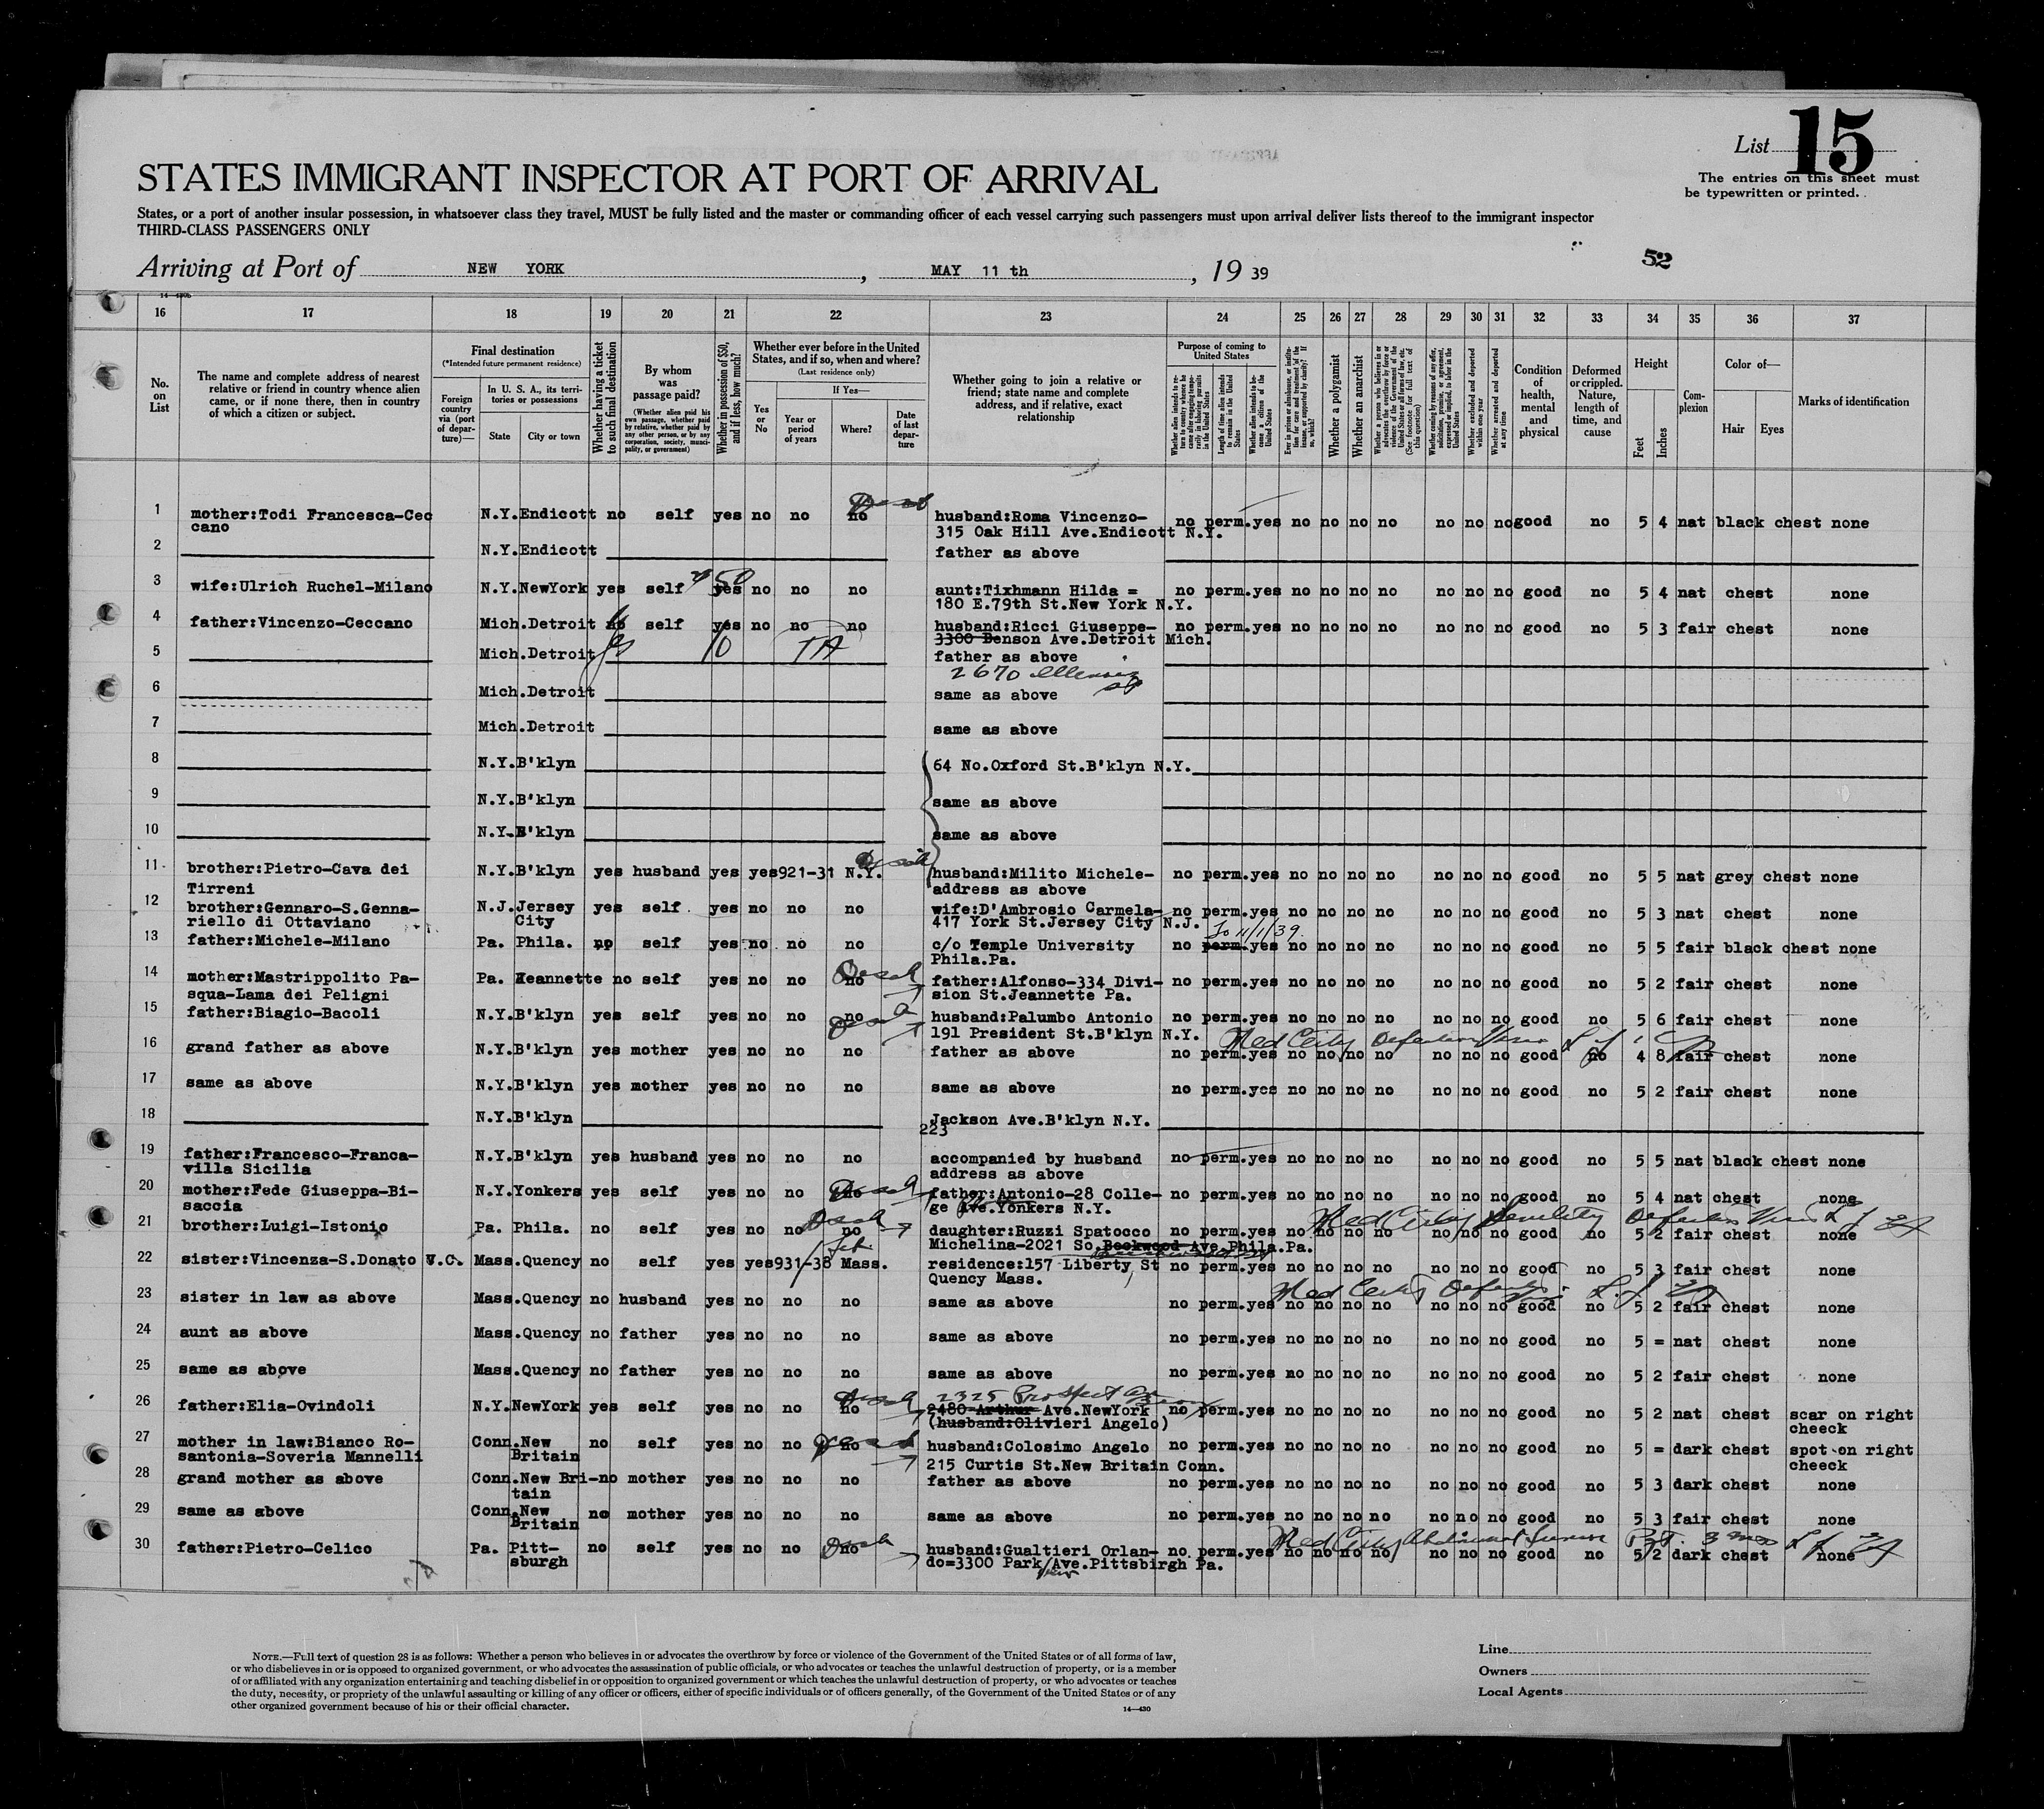 List 15
The entries on this sheet must
be typewritten or printed.
STATES IMMIGRANT INSPECTOR AT PORT OF ARRIVAL
States, or a port of another insular possession, in whatsoever class they travel, MUST be fully listed and the master or commanding officer of each vessel carrying such passengers must upon arrival deliver lists thereof to the immigrant inspector
THIRD-CLASS PASSENGERS ONLY
52
Arriving at Port of NEW YORK, MAY 11 th, 19 39
16 17 18 19 20 21 22 23 24 25 26 27 28 29 30 31 32 33 34 35 36 37
No. on List
The name and complete address of nearest
relative or friend in country whence alien
came, or if none there, then in country
of which a citizen or subject.
Final destination
(*Intended future permanent residence)
Foreign country via (port of departure)—
In U. S. A., its territories or possessions
State
City or town
Whether having a ticket to such final destination
By whom was passage paid?
(Whether alien paid his own passage, whether paid by relative, whether paid by any other person, or by any corporation, society, municipality, or government)
Whether in possession of $50, and if less, how much?
Whether ever before in the United States, and if so, when and where?
(Last residence only)
Yes or No
If Yes—
Year or period of years
Where?
Date of last departure
Whether going to join a relative or
friend; state name and complete
address, and if relative, exact
relationship
Purpose of coming to United States
Length of time alien intends to remain in the United States
Whether alien intends to become a citizen of the United States
Whether a polygamist
Whether an anarchist
Whether excluded and deported within one year
Whether arrested and deported at any time
Condition of health, mental and physical
Deformed or crippled. Nature, length of time, and cause
Height
Feet
Inches
Complexion
Color of—
Hair
Eyes
Marks of identification
1 mother:Todi Francesca-Cec N.Y. Endicott no self yes no no no husband:Roma Vincenzo- no perm. yes no no no no no no no good no 5 4 nat black chest none
cano 315 Oak Hill Ave.Endicott N.Y.
2 N.Y. Endicott father as above
3 wife:Ulrich Ruchel-Milano N.Y. NewYork yes self yes 50 no no no aunt:Tixhmann Hilda = no perm. yes no no no no no no no good no 5 4 nat chest none
180 E.79th St.New York N.Y.
4 father:Vincenzo-Ceccano Mich. Detroit no self yes no no no husband:Ricci Giuseppe- no perm. yes no no no no no no no good no 5 3 fair chest none
3300 Denson Ave.Detroit Mich.
5 Mich. Detroit 10 father as above
2670
6 Mich. Detroit same as above
7 Mich. Detroit same as above
8 N.Y. B'klyn 64 No.Oxford St.B'klyn N.Y.
9 N.Y. B'klyn same as above
10 N.Y. B'klyn same as above
11 brother:Pietro-Cava dei N.Y. B'klyn yes husband yes yes 921-31 N.Y. husband:Milito Michele- no perm. yes no no no no no no no good no 5 5 nat grey chest none
Tirreni address as above
12 brother:Gennaro-S.Genna- N.J. Jersey City yes self yes no no no wife:D'Ambrosio Carmela- no perm. yes no no no no no no no good no 5 3 nat chest none
riello di Ottaviano 417 York St.Jersey City N.J.
To 11/1/39.
13 father:Michele-Milano Pa. Phila. no self yes no no no c/o Temple University no perm. yes no no no no no no no good no 5 5 fair black chest none
Phila.Pa.
14 mother:Mastrippolito Pa- Pa. Jeannette no self yes no no no father:Alfonso-334 Divi- no perm. yes no no no no no no no good no 5 2 fair chest none
squa-Lama dei Peligni sion St.Jeannette Pa.
15 father:Biagio-Bacoli N.Y. B'klyn yes self yes no no no husband:Palumbo Antonio no perm. yes no no no no no no no good no 5 6 fair chest none
191 President St.B'klyn N.Y.
16 grand father as above N.Y. B'klyn yes mother yes no no no father as above no perm. yes no no no no no no no good no 4 8 fair chest none
17 same as above N.Y. B'klyn yes mother yes no no no same as above no perm. yes no no no no no no no good no 5 2 fair chest none
18 N.Y. B'klyn Jackson Ave.B'klyn N.Y.
223
19 father:Francesco-Franca- N.Y. B'klyn yes husband yes no no no accompanied by husband no perm. yes no no no no no no no good no 5 5 nat black chest none
villa Sicilia address as above
20 mother:Fede Giuseppa-Bi- N.Y. Yonkers yes self yes no no no father:Antonio-28 Colle- no perm. yes no no no no no no no good no 5 4 nat chest none
saccia ge Ave.Yonkers N.Y.
21 brother:Luigi-Istonio Pa. Phila. no self yes no no no daughter:Ruzzi Spatocco no perm. yes no no no no no no no good no 5 2 fair chest none
Michelina-2021 So.Beekwood Ave.Phila.Pa.
22 sister:Vincenza-S.Donato V.C. Mass. Quency no self yes yes 931-38 Mass. residence:157 Liberty St no perm. yes no no no no no no no good no 5 3 fair chest none
Quency Mass.
23 sister in law as above Mass. Quency no husband yes no no no same as above no perm. yes no no no no no no no good no 5 2 fair chest none
24 aunt as above Mass. Quency no father yes no no no same as above no perm. yes no no no no no no no good no 5 = nat chest none
25 same as above Mass. Quency no father yes no no no same as above no perm. yes no no no no no no no good no 5 2 fair chest none
2325 Prospect
26 father:Elia-Ovindoli N.Y. NewYork yes self yes no no no 2480 Arthur Ave.NewYork no perm. yes no no no no no no no good no 5 2 nat chest scar on right
(husband:Olivieri Angelo) cheeck
27 mother in law:Bianco Ro- Conn. New Britain no self yes no no no husband:Colosimo Angelo no perm. yes no no no no no no no good no 5 = dark chest spot on right
santonia-Soveria Mannelli 215 Curtis St.New Britain Conn. cheeck
28 grand mother as above Conn. New Bri-tain no mother yes no no no father as above no perm. yes no no no no no no no good no 5 3 dark chest none
29 same as above Conn. New Britain no mother yes no no no same as above no perm. yes no no no no no no no good no 5 3 fair chest none
30 father:Pietro-Celico Pa. Pitt-sburgh no self yes no no no husband:Gualtieri Orlan- no perm. yes no no no no no no no good no 5 2 dark chest none
do=3300 Park Ave.Pittsbirgh Pa.
NOTE.—Full text of question 28 is as follows: Whether a person who believes in or advocates the overthrow by force or violence of the Government of the United States or of all forms of law,
or who disbelieves in or is opposed to organized government, or who advocates the assassination of public officials, or who advocates or teaches the unlawful destruction of property, or is a member
of or affiliated with any organization entertaining and teaching disbelief in or opposition to organized government or which teaches the unlawful destruction of property, or who advocates or teaches
the duty, necessity, or propriety of the unlawful assaulting or killing of any officer or officers, either of specific individuals or of officers generally, of the Government of the United States or of any
other organized government because of his or their official character.
14—430
Line
Owners
Local Agents